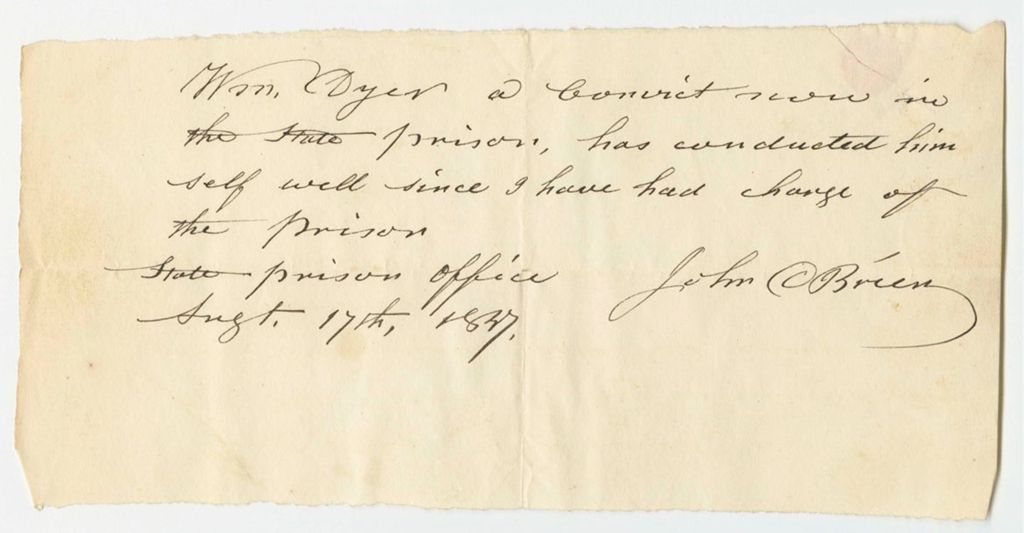 Wm. Dyer a Convict now in
the State prison, has conducted him
self well since I have had charge of
the prison
State prison office John OBrien
Augt. 17th, 1847.